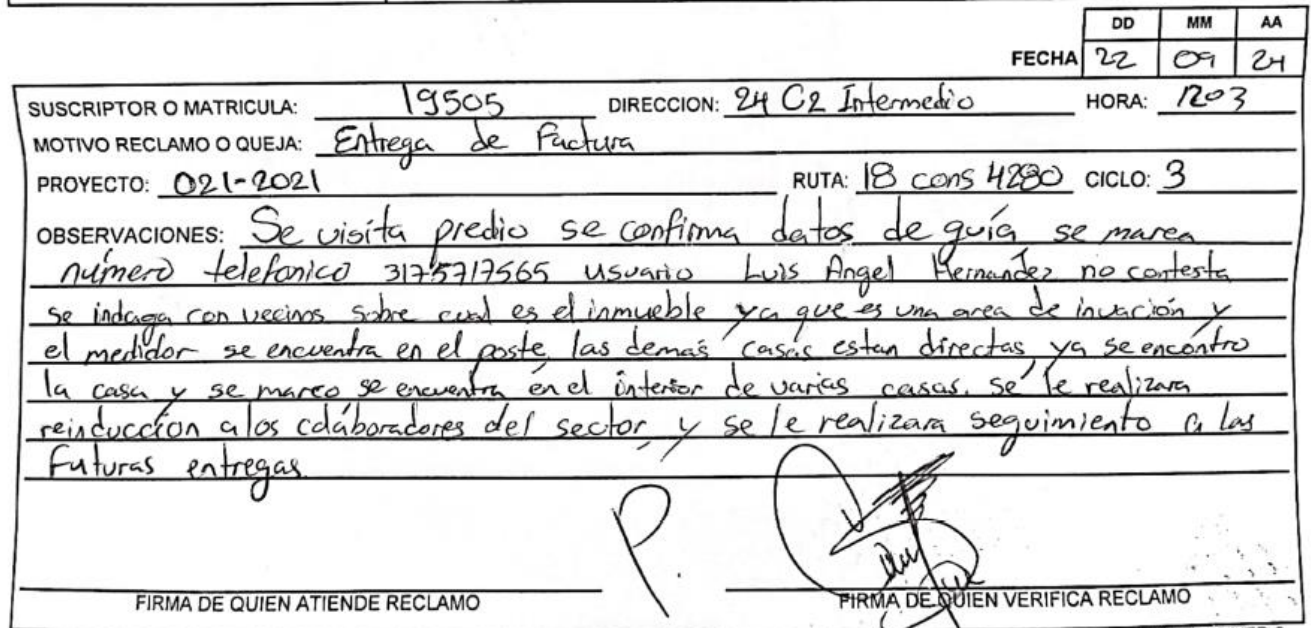 DD MM AA
FECHA 22 09 24
SUSCRIPTOR O MATRICULA: 19505 DIRECCION: 24 C2 Intermedio HORA: 1203
MOTIVO RECLAMO O QUEJA: Entrega de Factura
PROYECTO: 021-2021 RUTA: 18 cons 4280 CICLO: 3
OBSERVACIONES: Se visita predio se confirma datos de guía se marca
número telefonico 3175717565 usuario Luis Angel Hernandez no contesta
se indaga con vecinos sobre cual es el inmueble ya que es una area de invación y
el medidor se encuentra en el poste, las demás casas estan directas, ya se encontro
la casa y se marco se encuentra en el interior de varias casas. se le realizara
reinducción a los colaboradores del sector y se le realizara seguimiento a las
futuras entregas.
P.
FIRMA DE QUIEN ATIENDE RECLAMO FIRMA DE QUIEN VERIFICA RECLAMO